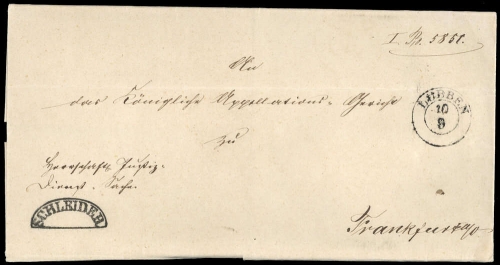 I. Nr. 5851.
An
das Königliche Appellations-Gericht
zu
LÜBBEN
10
8
Herrschaftl. Justiz-
Dienst-Sache.
SCHLEIDEN
Frankfurt a/O